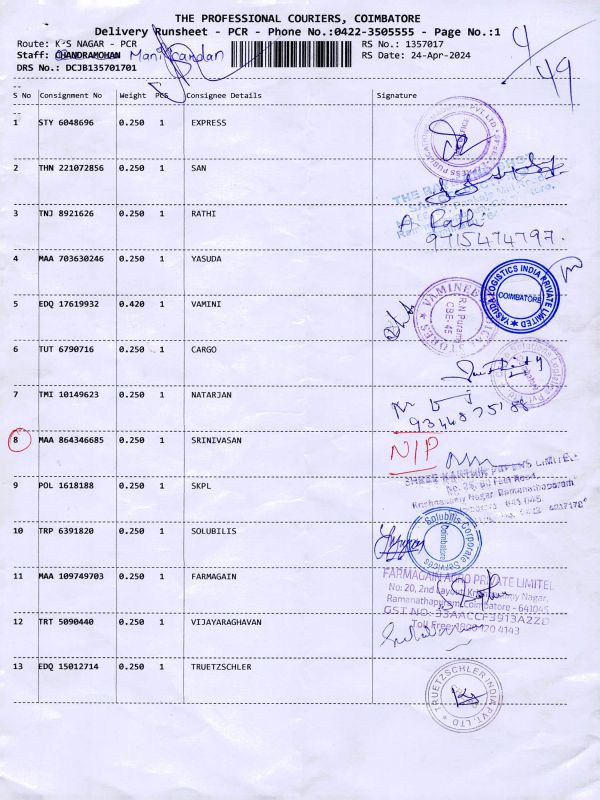 THE PROFESSIONAL COURIERS, COIMBATORE
Delivery Runsheet - PCR - Phone No.:0422-3505555 - Page No.:1
Route: K·S NAGAR - PCR
RS No.: 1357017
4/49
Staff: CHANDRAMOHAN Manikandan
RS Date: 24-Apr-2024
DRS No.: DCJB135701701
S No Consignment No Weight PCS Consignee Details Signature
1 STY 6048696 0.250 1 EXPRESS
2 THN 221072856 0.250 1 SAN
3 TNJ 8921626 0.250 1 RATHI
A Rathi
9715474797.
4 MAA 703630246 0.250 1 YASUDA
YASUDA LOGISTICS INDIA PRIVATE LIMITED
COIMBATORE
5 EDQ 17619932 0.420 1 VAMINI
R.N.Puram
CBE-45
6 TUT 6790716 0.250 1 CARGO
7 TMI 10149623 0.250 1 NATARJAN
8 MAA 864346685 0.250 1 SRINIVASAN
N/P
9 POL 1618188 0.250 1 SKPL
Krishnasamy Nagar, Ramanathapuram
10 TRP 6391820 0.250 1 SOLUBILIS
Solubilis Corporate Services
Coimbatore
11 MAA 109749703 0.250 1 FARMAGAIN
FARMAGAIN AGRO PRIVATE LIMITED
No: 20, 2nd Layout, Nagar,
Ramanathapuram, Coimbatore - 641045
GST NO: 33AACCF3913A2ZD
Toll Free: 1800 120 4143
12 TRT 5090440 0.250 1 VIJAYARAGHAVAN
13 EDQ 15012714 0.250 1 TRUETZSCHLER
TRUETZSCHLER INDIA PVT. LTD